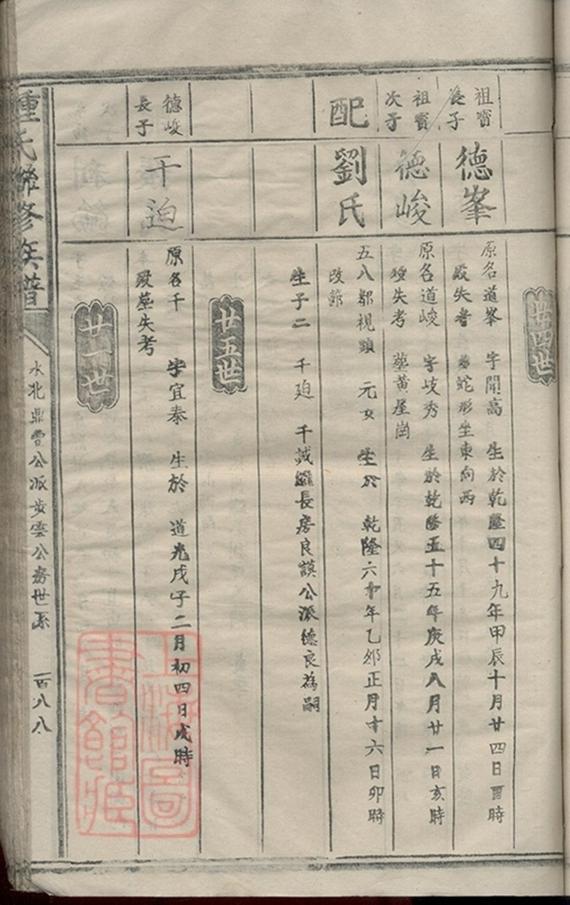 廿四世
祖寶
長子
德峯
原名道峯 字開高 生於乾隆四十九年甲辰十月廿四日酉時
歿失考 葬蛇形坐東向西
祖寶
次子
德峻
原名道峻 字岐秀 生於乾隆五十五年庚戌八月廿一日亥時
歿失考 葬黃屋崗
配
劉氏
五八都視頭 元女 生於 乾隆六十年乙卯正月十六日卯時
改節
生子二 千迫 千誠繼長房良謨公派德良為嗣
廿五世
德峻
長子
千迫
原名千 字宜泰 生於 道光戊子二月初四日戌時
歿葬失考
廿一世
鍾氏聯修族譜
水北鼎雷公派步雲公房世系
一百八八
上海圖書館藏